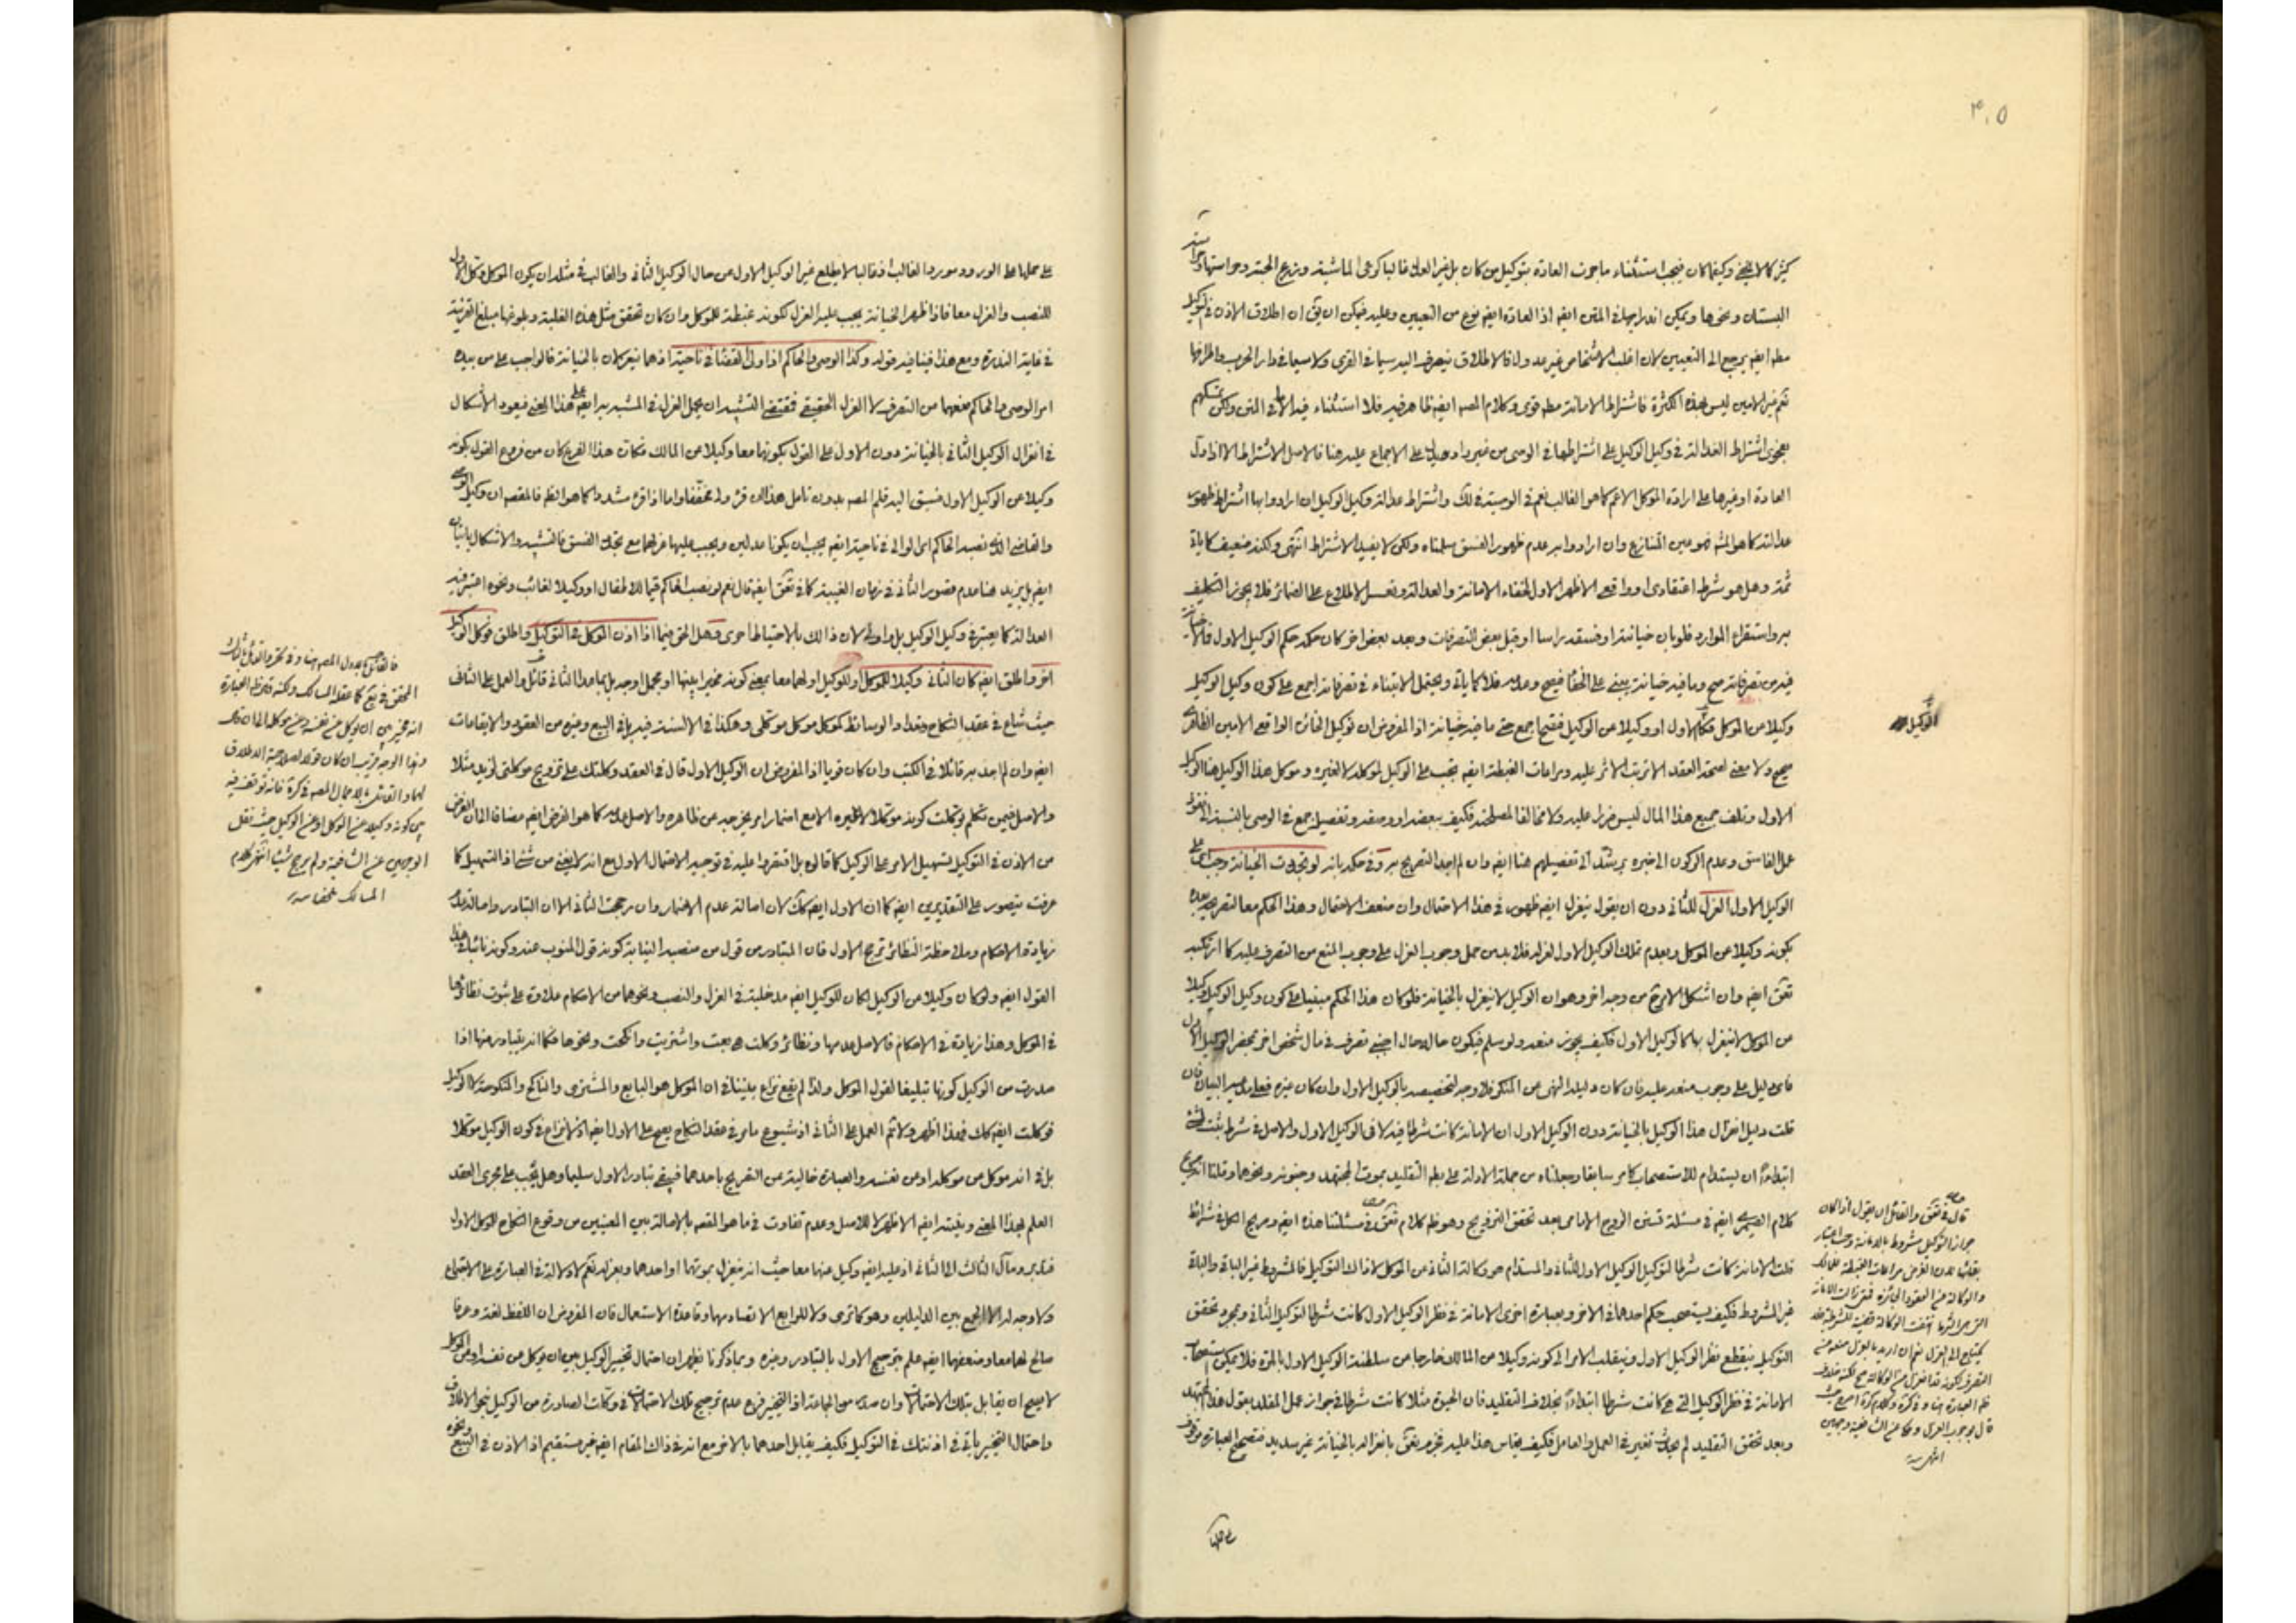 ٣٠٥
كثير كما لا يخفى وكيفما كان فيجب استثناء ما جرت العادة بتوكيل من كان بل غير العدل غالبا كرعى الماشية
البستان ونحوها ويمكن اندراجها في المتن ايضا اذ العادة ايضا نوع من التعيين وعليه فيمكن ان يق ان اطلاق الاذن في توكيل
ايضا يرجع الى التعيين لان اغلب الاشخاص غير عدول فالاطلاق ينصرف اليه سيما في القرى ولا سيما في دار الحرب واطرافها
نعم غير الامين ليس بهذه الكثرة فاشتراط الامانة قوى وكلام المصه ايضا ظاهر فيه فلا استثناء في المتن ولكن
بفحوى اشتراط العدالة في وكيل الوكيل على اشتراطها في الوصى من غير على الاجماع عليه هنا فالاصل الاشتراط الا اذا دل
العادة او غيرها على ارادة الموكل الاعم كما هو الغالب نعم في الوصية ذلك واشتراط عدالة وكيل الوكيل ان ارادوا بها اشتراط ظهور
عدالته كما هو المش فهو عين المتنازع وان ارادوا به عدم ظهور الفسق سلمناه ولكن لا يفيد الاشتراط انتهى ولكنه ضعيف كما ياتي
ثمة وهل هو شرط اعتقادى او واقعى الاظهر الاول لخفاء الامانة والعدالة وتعسر الاطلاع على الضمائر فلا يجوز التكليف
به واستقراء الموارد فلو بان خيانته او فسقه راسا او قبل بعض التصرفات وبعد بعض اخر كان حكمه حكم الوكيل الاول
فيه من تصرفاته صح وما فيه خيانة يبنى على فيصح وعدمه فلا كما ياتي ويحتمل الابتناء في تصرفاته اجمع على كون وكيل الوكيل
وكيلا عن الموكل الاول او وكيلا عن الوكيل فيصح اجمع حتى ما فيه خيانة اذ المفروض ان توكيل الخائن الواقعى الامين الظاهرى
الوكيل
صحيح ولا معنى لصحة العقد الا ترتب الاثر عليه ومراعات الغبطة ايضا تجب على الوكيل لموكله لا لغيره وموكل هذا الوكيل هنا الوكيل
الاول وتلف جميع هذا المال ليس ضررا عليه ولا مخالفا لمصلحته فكيف ببعضه او وصفه وتفصيل جمع في الوصى بالنسبة الى
عمل الفاسق وعدم الركون الى خبره يرشد الى تفصيلهم هنا ايضا وان لم اجد التصريح به وفى حكمه بانه لو تجددت الخيانة وجب على
الوكيل الاول العزل للثاني دون ان يقول ينعزل ايضا ظهور في هذا الاحتمال وان ضعف الاحتمال وهذا الحكم مع التصريح بعده
بكونه وكيلا عن الموكل وبعدم تملك الوكيل الاول لعزله فلا بد من حمل وجوب العزل على وجوب المنع من التصرف عليه كما ارتكبه
ايضا وان اشكل الامر من وجه اخر وهو ان الوكيل لا ينعزل بالخيانة فلو كان هذا الحكم مبنيا على كون وكيل الوكيل وكيلا
من الموكل لا ينعزل بها كالوكيل الاول فكيف يجوز منعه ولو سلم فيكون حاله حال اجنبى تصرف في مال شخص اخر بمحضر الوكيل الاول
فاى دليل على وجوب منعه عليه فان كان دليله النهى عن المنكر فلا وجه لتخصيصه بالوكيل الاول وان كان غيره فعليه البيان فان
قلت دليل انعزال هذا الوكيل بالخيانة دون الوكيل الاول ان الامانة كانت شرطا فيه لا في الوكيل الاول والاصل في شرط
ابتداءً ان يستدام للاستصحاب كما مر سابقا وجعلناه من جملة الادلة على بط التقليد بموت المجتهد وجنونه ونحوهما وقلنا
كلام ايضا في مسئلة تبين الزوج بعد تحقق التزويج وهو ظ كلام في مسئلتنا هذه ايضا وصريح الكل في شرائط
قلت الامانة كانت شرطا لتوكيل الوكيل الاول للثاني والمستدام هو وكالة الثاني عن الموكل لا ذاك التوكيل فالمشروط غير الباقى والباقى
غير المشروط فكيف يستصحب حكم احدهما في الاخر وبعبارة اخرى الامانة في نظر الوكيل الاول كانت شرطا لتوكيل الثاني وبمجرد تحقق
التوكيل ينقطع نظر الوكيل الاول وينقلب الامر الى كونه وكيلا من المالك خارجا من سلطنة الوكيل الاول بالمرة فلا يمكن
الامانة في نظر الوكيل التى هى كانت شرطا ابتداءً بخلاف التقليد فان الحيوة مثلا كانت شرطا في جواز عمل المقلد بقول
وبعد تحقق التقليد لم يحدث تغير في العمل والعامل فكيف يقاس هذا عليه فجزم بانعزاله بالخيانة غير سديد فتصحيح العبارة موقوف
قال في والقائل ان يقول اذا كان
جواز التوكيل مشروطا بالامانة وجب اعتبار
بقائها لان الغرض مراعات الغبطة للمالك
والوكالة من العقود الجائزة فمتى زالت الامانة
التى هى الشرط انتفت الوكالة قضية للشرطية فلا
يحتاج الى العزل نعم ان اريد بالعزل منعه من
التصرف لكونه قد انعزل من الوكالة صح لكنه خلاف
ظ العبارة هنا وفى كرة وكلام كرة اصرح حيث
قال بوجوب العزل وحكى عن الشافعية وجهين
انتهى منه
على حملها على الورود مورد الغالب اذ غالبا لا يطلع غير الوكيل الاول من حال الوكيل الثاني والغالب في مثله ان يكون الموكل وكل الاول
للنصب والعزل معا فاذا ظهر الخيانة يجب عليه العزل لكونه غبطة للموكل وان كان تحقق مثل هذه الغلبة وبلوغها مبلغ القرينة
في غاية الندرة ومع هذا فينافيه قوله وكذا الوصى والحاكم اذا ولى القضاء في ناحية اذ هما ينعزلان بالخيانة فالواجب على من بيده
امر الوصى والحاكم منعهما من التصرف لا العزل الحقيقى فمقتضى التشبيه ان يحمل العزل في المشبه به ايضا على هذا المعنى فيعود الاشكال
في انعزال الوكيل الثاني بالخيانة دون الاول على القول بكونهما معا وكيلا عن المالك فكانت هذا الفرع كان من فروع القول بكونه
وكيلا عن الوكيل الاول فسبق اليه قلم المصه بدون تامل هذا ان قرء ولى مخففا واما اذا قرء مشددا كما هو الظ فالمقصود ان وكيل الوصى
والقاضى الذى نصبه الحاكم اى الوالى في ناحية ايضا يجب ان يكونا عدلين ويجب عليهما عزلهما مع تجدد الفسق فالتشبيه والاشكال باقيان
ايضا بل يزيد هنا عدم قصور الثاني في زمان الغيبة كما في ايضا قال نعم لو نصب الحاكم قيما للاطفال او وكيلا لغائب ونحوه اعتبر فيه
العدالة كما يعتبر في وكيل الوكيل بل اولى لان ذلك بالاحتياط احرى وهل الحق فيما اذا اذن الموكل في التوكيل واطلق فوكل الوكيل
اخر واطلق ايضا كان الثاني وكيلا للموكل او للوكيل او لهما معا بمعنى كونه مخيرا بينهما او مجمل اوجه بل بما عدا الثاني قائل والعمل على الثالث
حيث شاع في عقد النكاح وتعدد الوسائط كوكل موكل موكلى وهكذا في الالسنة فيه بل في البيع وغيره من العقود والايقاعات
ايضا وان لم اجد به قائلا في الكتب وان كان قويا اذ المفروض ان الوكيل الاول قال في العقد وكلتك على تزويج موكلتى لزيد مثلا
والاصل فيمن تكلم بوكلت كونه موكلا لا غيره الا مع اضمار امر يخرجه عن ظاهره والاصل عدمه كما هو الفرض ايضا مضافا الى ان الغرض
من الاذن في التوكيل تسهيل الامر على الوكيل كما قالوه بل اقتصروا عليه في توجيه الاحتمال الاول مع انه لا يغنى من شىء اذ التسهيل كما
عرفت يتصور على التقديرين ايضا كما ان الاول ايضا كك لان اصالة عدم الاضمار وان رجحت الثاني الا ان التبادر واصالة عدم
زيادة الاحكام وملاحظة النظائر ترجح الاول فان المتبادر من قول من منصبه النيابة كونه قول المنوب عنه وكونه نائبا في هذا
القول ايضا ولو كان وكيلا من الوكيل لكان للوكيل ايضا مدخلية في العزل والنصب ونحوهما من الاحكام علاوة على ثبوت نظائرها
في الموكل وهذا زيادة في الاحكام فالاصل عدمها ونظائر وكلت هى بعت واشتريت وانكحت ونحوها فكما انه يتبادر منها اذا
صدرت من الوكيل كونها تبليغا لقول الموكل ولذا لم يقع نزاع بيننا في ان الموكل هو البايع والمشترى والناكح والمنكوحة لا الوكيل
فوكلت ايضا كك فهذا اظهر ولا ثم العمل على الثاني اذ شيوع ما مر في عقد النكاح يصح على الاول ايضا اذ لا نزاع في كون الوكيل موكلا
بل في انه موكل من موكله او من نفسه والعبارة خالية عن التصريح باحدهما فيبقى تبادر الاول سليما وهل يجب على مجرى العقد
العلم بهذا المعنى ونيته ايضا الاظهر لا للاصل وعدم تفاوت في ما هو المقصود بالاصالة بين المعنيين من وقوع النكاح للموكل الاول
ومآل الثالث الى الثاني اذ عليه ايضا وكيل عنهما معا حيث انه ينعزل بموتهما او احدهما وبعزله نعم لا دلالة في العبارة على الاجتماع
ولا وجه له الا الجمع بين الدليلين وهو كما ترى ولا للرابع الا تصادمهما وقاعدة الاستعمال فان المفروض ان اللفظ لغة وعرفا
صالح لهما معا وضعفهما ايضا علم بترجيح الاول بالتبادر وغيره وبما ذكرنا يظهر ان احتمال تخيير الوكيل بين ان يوكل من نفسه او من الموكل
لا يصح ان يقابل بتلك الاحتمالات وان صدر من الجماعة اذ التخيير فرع عدم ترجيح تلك الاحتمالات في وكلت الصادرة من الوكيل بنحو الاطلاق
واحتمال التخيير ياتي في اذنتك في التوكيل فكيف يقابل احدهما بالاخر مع انه في ذاك المقام ايضا غير مستقيم اذ الاذن في البيع ونحوه
المحقق في كما عنه المسالك ولكنه
انه مخير بين ان يوكل عن نفسه وعن موكله
وهذا الوجه قريب ان كان قولا لصلاحية الاطلاق
لهما والقائل بالاجمال المصه في كرة فانه توقف فيه
بين كونه وكيلا عن الموكل او عن الوكيل حيث نقل
الوجهين عن الشافعية ولم يرجح شيئا انتهى كلام
المسالك ملخصا منه